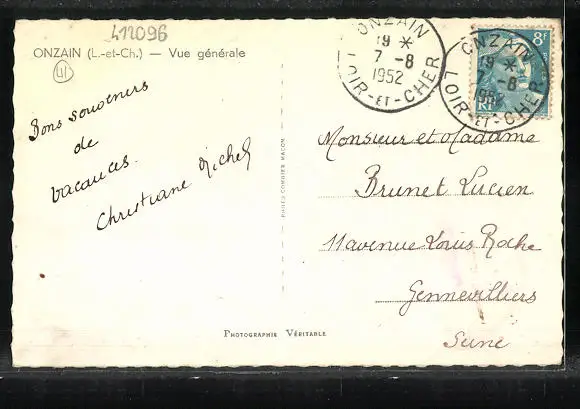 412096
ONZAIN (L.-et-Ch.) — Vue générale
41
Bons souvenirs
de
vacances.
Christiane Michel
PHOTO COMBIER MACON
PHOTOGRAPHIE VÉRITABLE
ONZAIN
19 *
7 -8
1952
LOIR-ET-CHER
ONZAIN
19 *
7 -8
1952
LOIR-ET-CHER
8F
RF
Monsieur et Madame
Brunet Lucien
11 avenue Louis Roche
Gennevilliers
Seine